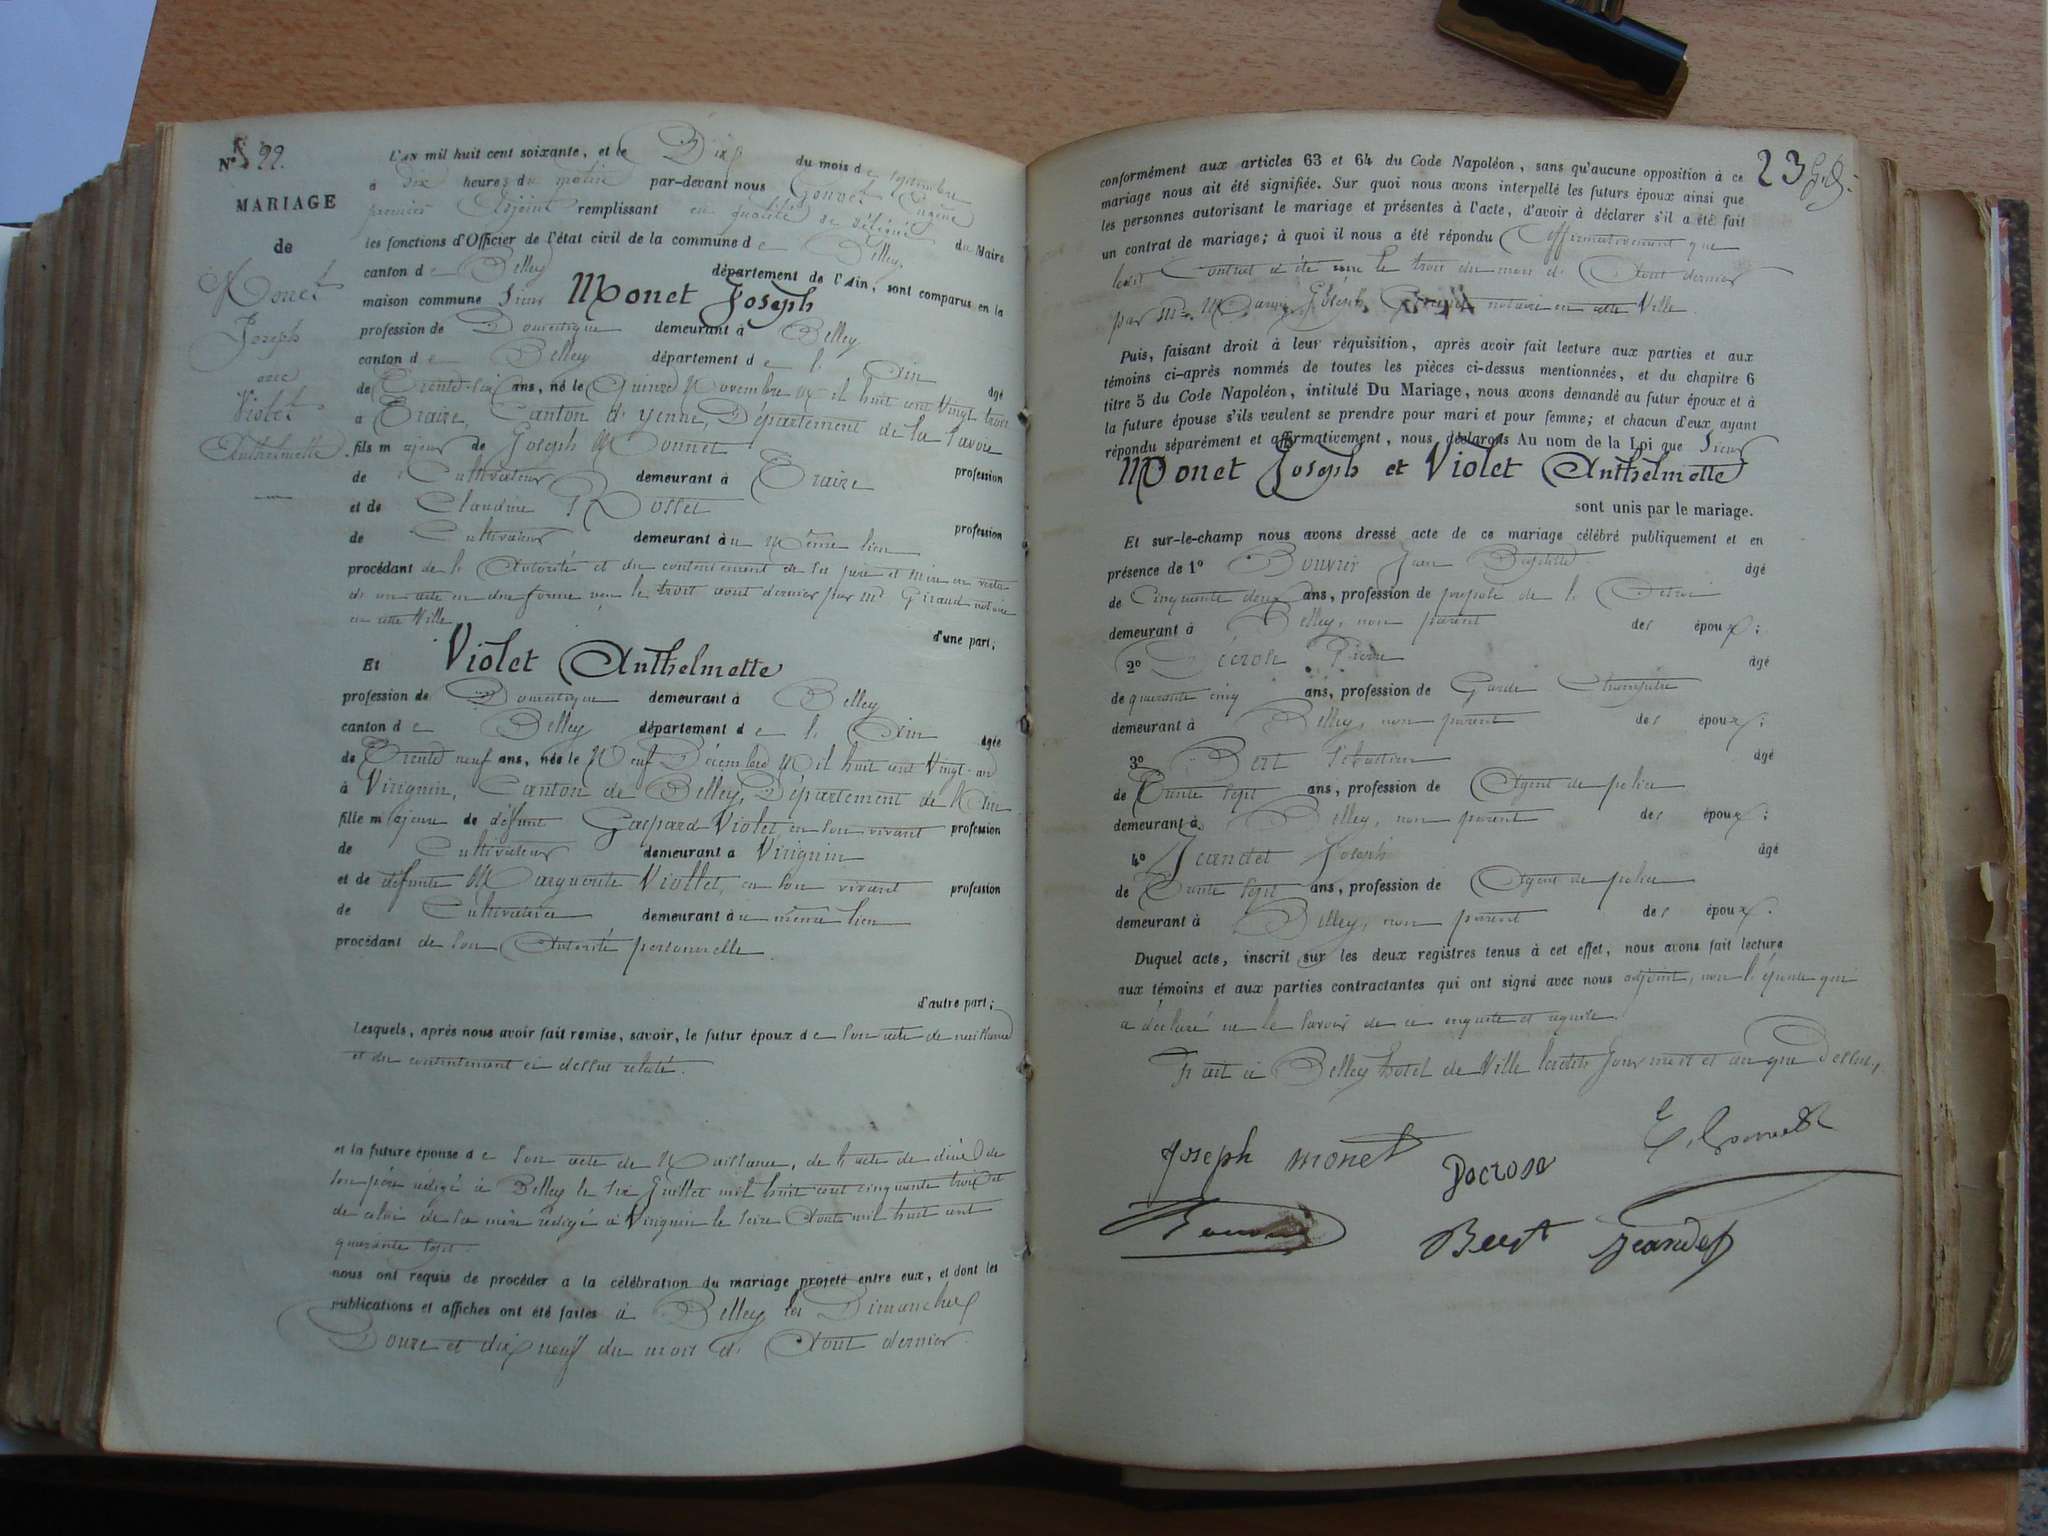 N° 22.
MARIAGE
de
Monet
Joseph
avec
Violet
Anthelmette.
L'AN mil huit cent soixante, et le Dix du mois de septembre
à Dix heures du matin par-devant nous Gonnet Eugène
premier Adjoint remplissant en qualité de délégué du Maire
les fonctions d'Officier de l'état civil de la commune de Belley,
canton de Belley département de l'Ain, sont comparus en la
maison commune Sieur Monet Joseph
profession de Domestique demeurant à Belley
canton de Belley département de l'Ain âgé
de Trente-six ans, né le Quinze Novembre Mil huit cent Vingt trois
à Traize, Canton d'Yenne, Département de la Savoie
fils majeur de Joseph Monnet profession
de Cultivateur demeurant à Traize
et de Claudine Rosset profession
de Cultivateur demeurant au même lieu
procédant de l'Autorité et du contentement de ses père et mère en vertu
de un acte en due forme reçu le trois aout dernier par Me Giraud notaire
en cette Ville d'une part;
Et Violet Anthelmette
profession de Domestique demeurant à Belley
canton de Belley département de l'Ain âgée
de Trente neuf ans, née le Neuf Décembre Mil huit cent Vingt
à Virignin, Canton de Belley, Département de l'Ain
fille majeure de défunt Gaspard Violet, en son vivant profession
de Cultivateur demeurant à Virignin
et de défunte Marguerite Viollet, en son vivant profession
de Cultivatrice demeurant au même lieu
procédant de son Autorité personnelle.
d'autre part;
Lesquels, après nous avoir fait remise, savoir, le futur époux de son acte de naissance
et du contentement ci dessus relaté.
et la future épouse de son acte de Naissance, de l'acte de décès de
son père rédigé à Belley le six Juillet mil huit cent cinquante trois et
de celui de sa mère rédigé à Virignin le seize Aout mil huit cent
quarante sept.
nous ont requis de procéder à la célébration du mariage projeté entre eux, et dont les
publications et affiches ont été faites à Belley les Dimanches
Douze et dix neuf du mois d'Aout dernier.
23
conformément aux articles 63 et 64 du Code Napoléon, sans qu'aucune opposition à ce
mariage nous ait été signifiée. Sur quoi nous avons interpellé les futurs époux ainsi que
les personnes autorisant le mariage et présentes à l'acte, d'avoir à déclarer s'il a été fait
un contrat de mariage; à quoi il nous a été répondu Affirmativement que
ledit Contrat a été reçu le trois du mois d'Aout dernier
par Me Joseph notaire en cette Ville.
Puis, faisant droit à leur réquisition, après avoir fait lecture aux parties et aux
témoins ci-après nommés de toutes les pièces ci-dessus mentionnées, et du chapitre 6
titre 5 du Code Napoléon, intitulé Du Mariage, nous avons demandé au futur époux et à
la future épouse s'ils veulent se prendre pour mari et pour femme; et chacun d'eux ayant
répondu séparément et affirmativement, nous déclarons Au nom de la Loi que Sieur
Monet Joseph et Violet Anthelmette
sont unis par le mariage.
Et sur-le-champ nous avons dressé acte de ce mariage célébré publiquement et en
présence de 1° Bouvier Jean Baptiste âgé
de Cinquante deux ans, profession de préposé de l'Octroi
demeurant à Belley, non parent des époux;
2° Décrose Pierre âgé
de quarante cinq ans, profession de Garde Champêtre
demeurant à Belley, non parent des époux;
3° Bert Sébastien âgé
de Trente sept ans, profession de Agent de police
demeurant à Belley, non parent des époux;
4° Jeandet Joseph âgé
de Trente sept ans, profession de Agent de police
demeurant à Belley, non parent des époux.
Duquel acte, inscrit sur les deux registres tenus à cet effet, nous avons fait lecture
aux témoins et aux parties contractantes qui ont signé avec nous adjoint, non l'épouse qui
a déclaré ne le savoir de ce enquise et requise.
Fait à Belley hotel de Ville lesdits Jour mois et an que Dessus,
Joseph monet Decrose E. Gonnet
Bouvier Bert Jeandet